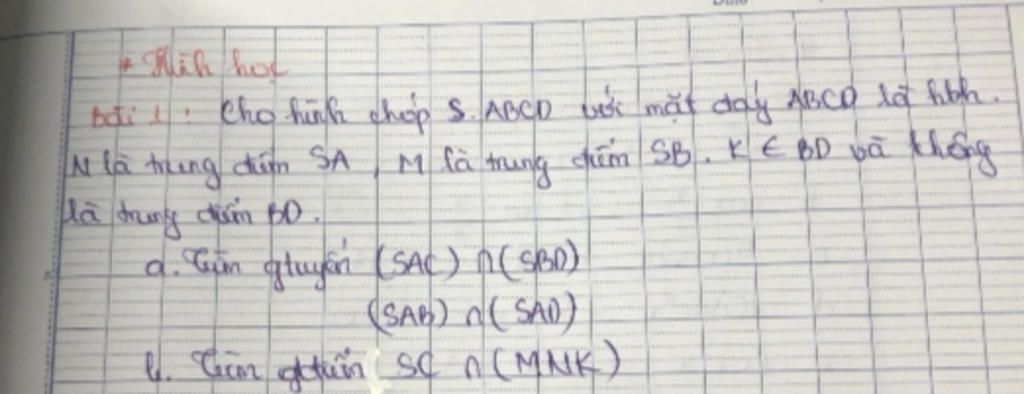 * Hình học
Bài 1: Cho hình chóp S.ABCD với mặt đáy ABCD là hbh.
N là trung điểm SA, M là trung điểm SB. K ∈ BD và không
là trung điểm BD.
a. Tìm gtuyến (SAC) ∩ (SBD)
(SAB) ∩ (SAD)
b. Tìm gđiểm SC ∩ (MNK)